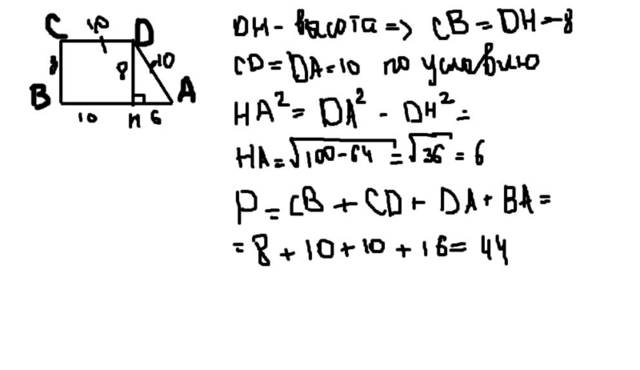 C 10 D
8 8 10
B A
10 H 6
DH - высота => CB = DH = 8
CD = DA = 10 по условию
HA² = DA² - DH² =
HA = √100-64 = √36 = 6
P = CB + CD + DA + BA =
= 8 + 10 + 10 + 16 = 44